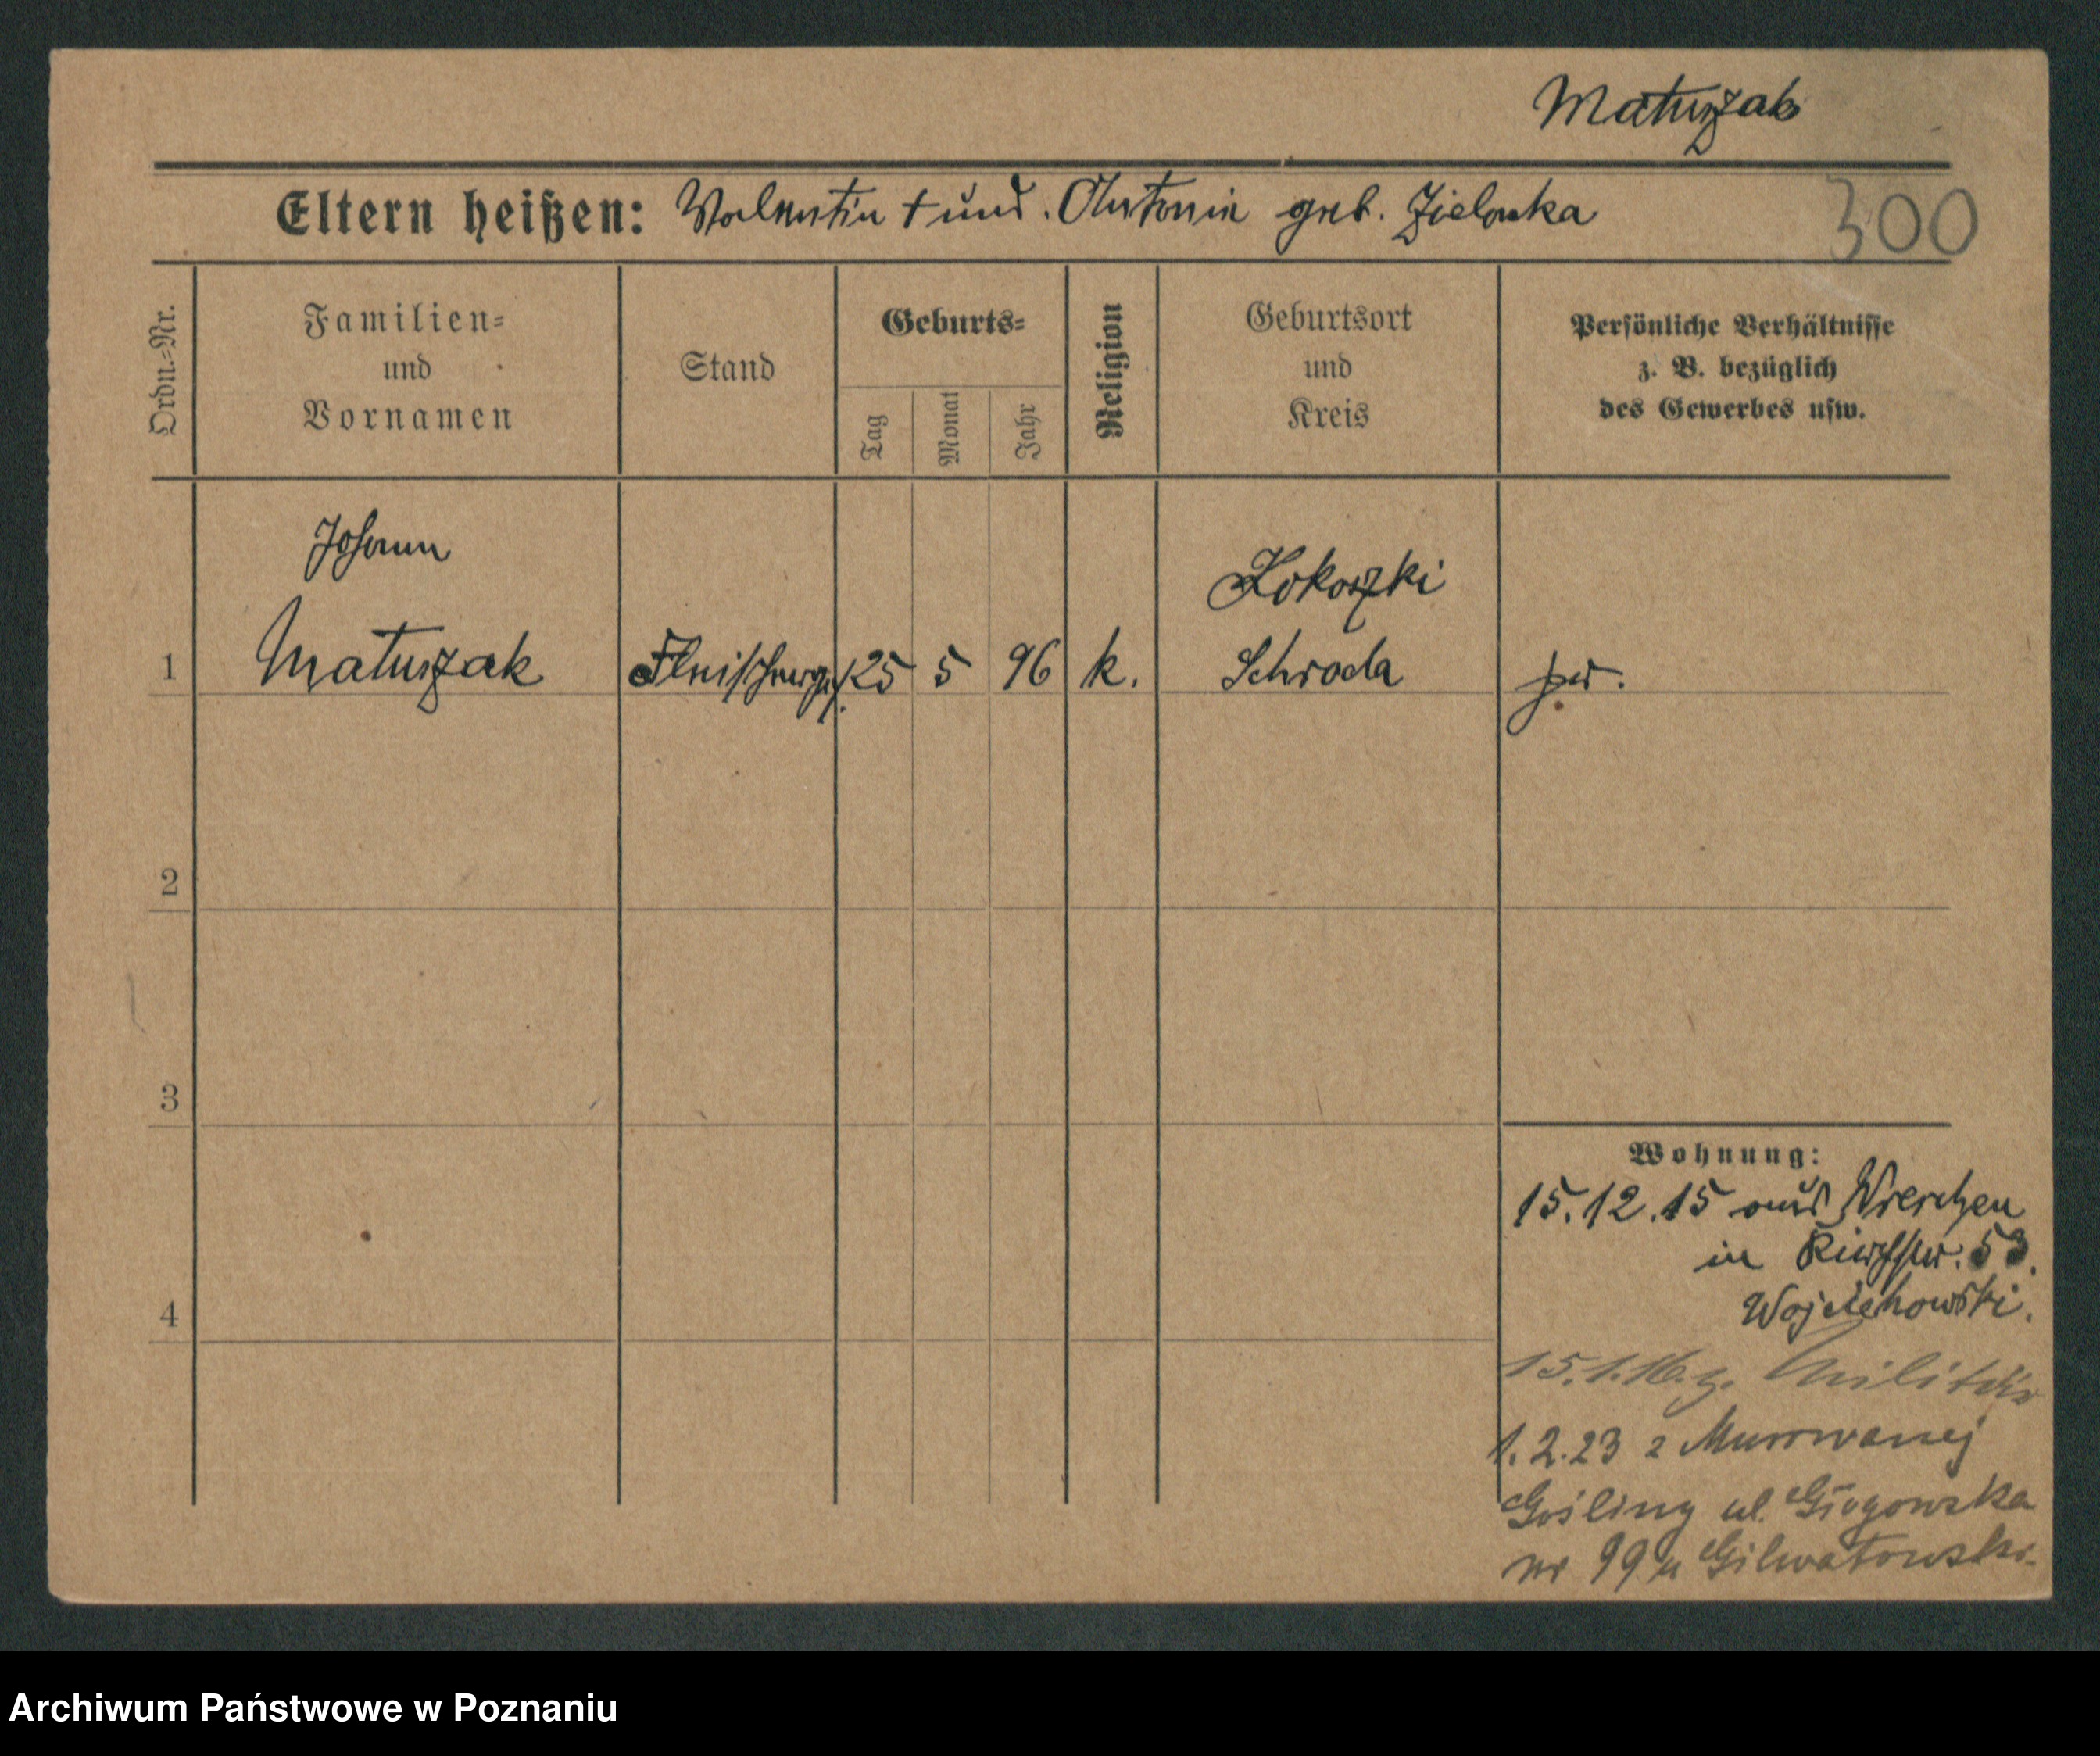 Matuszak
Eltern heißen: Valentin † und Antonie geb. Zielonka
300
Ordn.=Nr.
Familien=
und
Vornamen
Stand
Geburts=
Tag
Monat
Jahr
Religion
Geburtsort
und
Kreis
Persönliche Verhältnisse
z. B. bezüglich
des Gewerbes usw.
Johann
Kokoszki
1 Matuszak Fleischerges. 25 5 96 k. Schroda pr.
2
3
4
Wohnung:
15.12.15 aus Wreschen
in 53.
Wojciechowski.
15.1.16. z. Militär
1.2.23 z Murowanej
Gośliny ul. Głogowska
nr 99 u
Archiwum Państwowe w Poznaniu